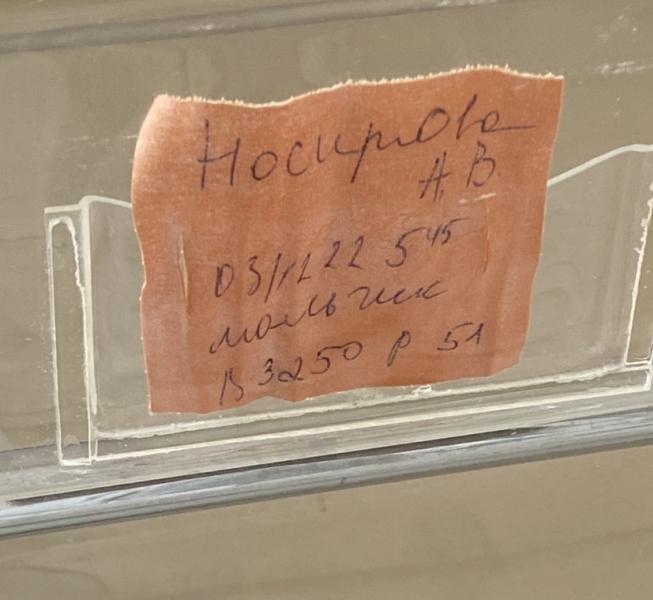 Носирова
А В
03/XI 22 5 45
мальчик
В 3250 р 51